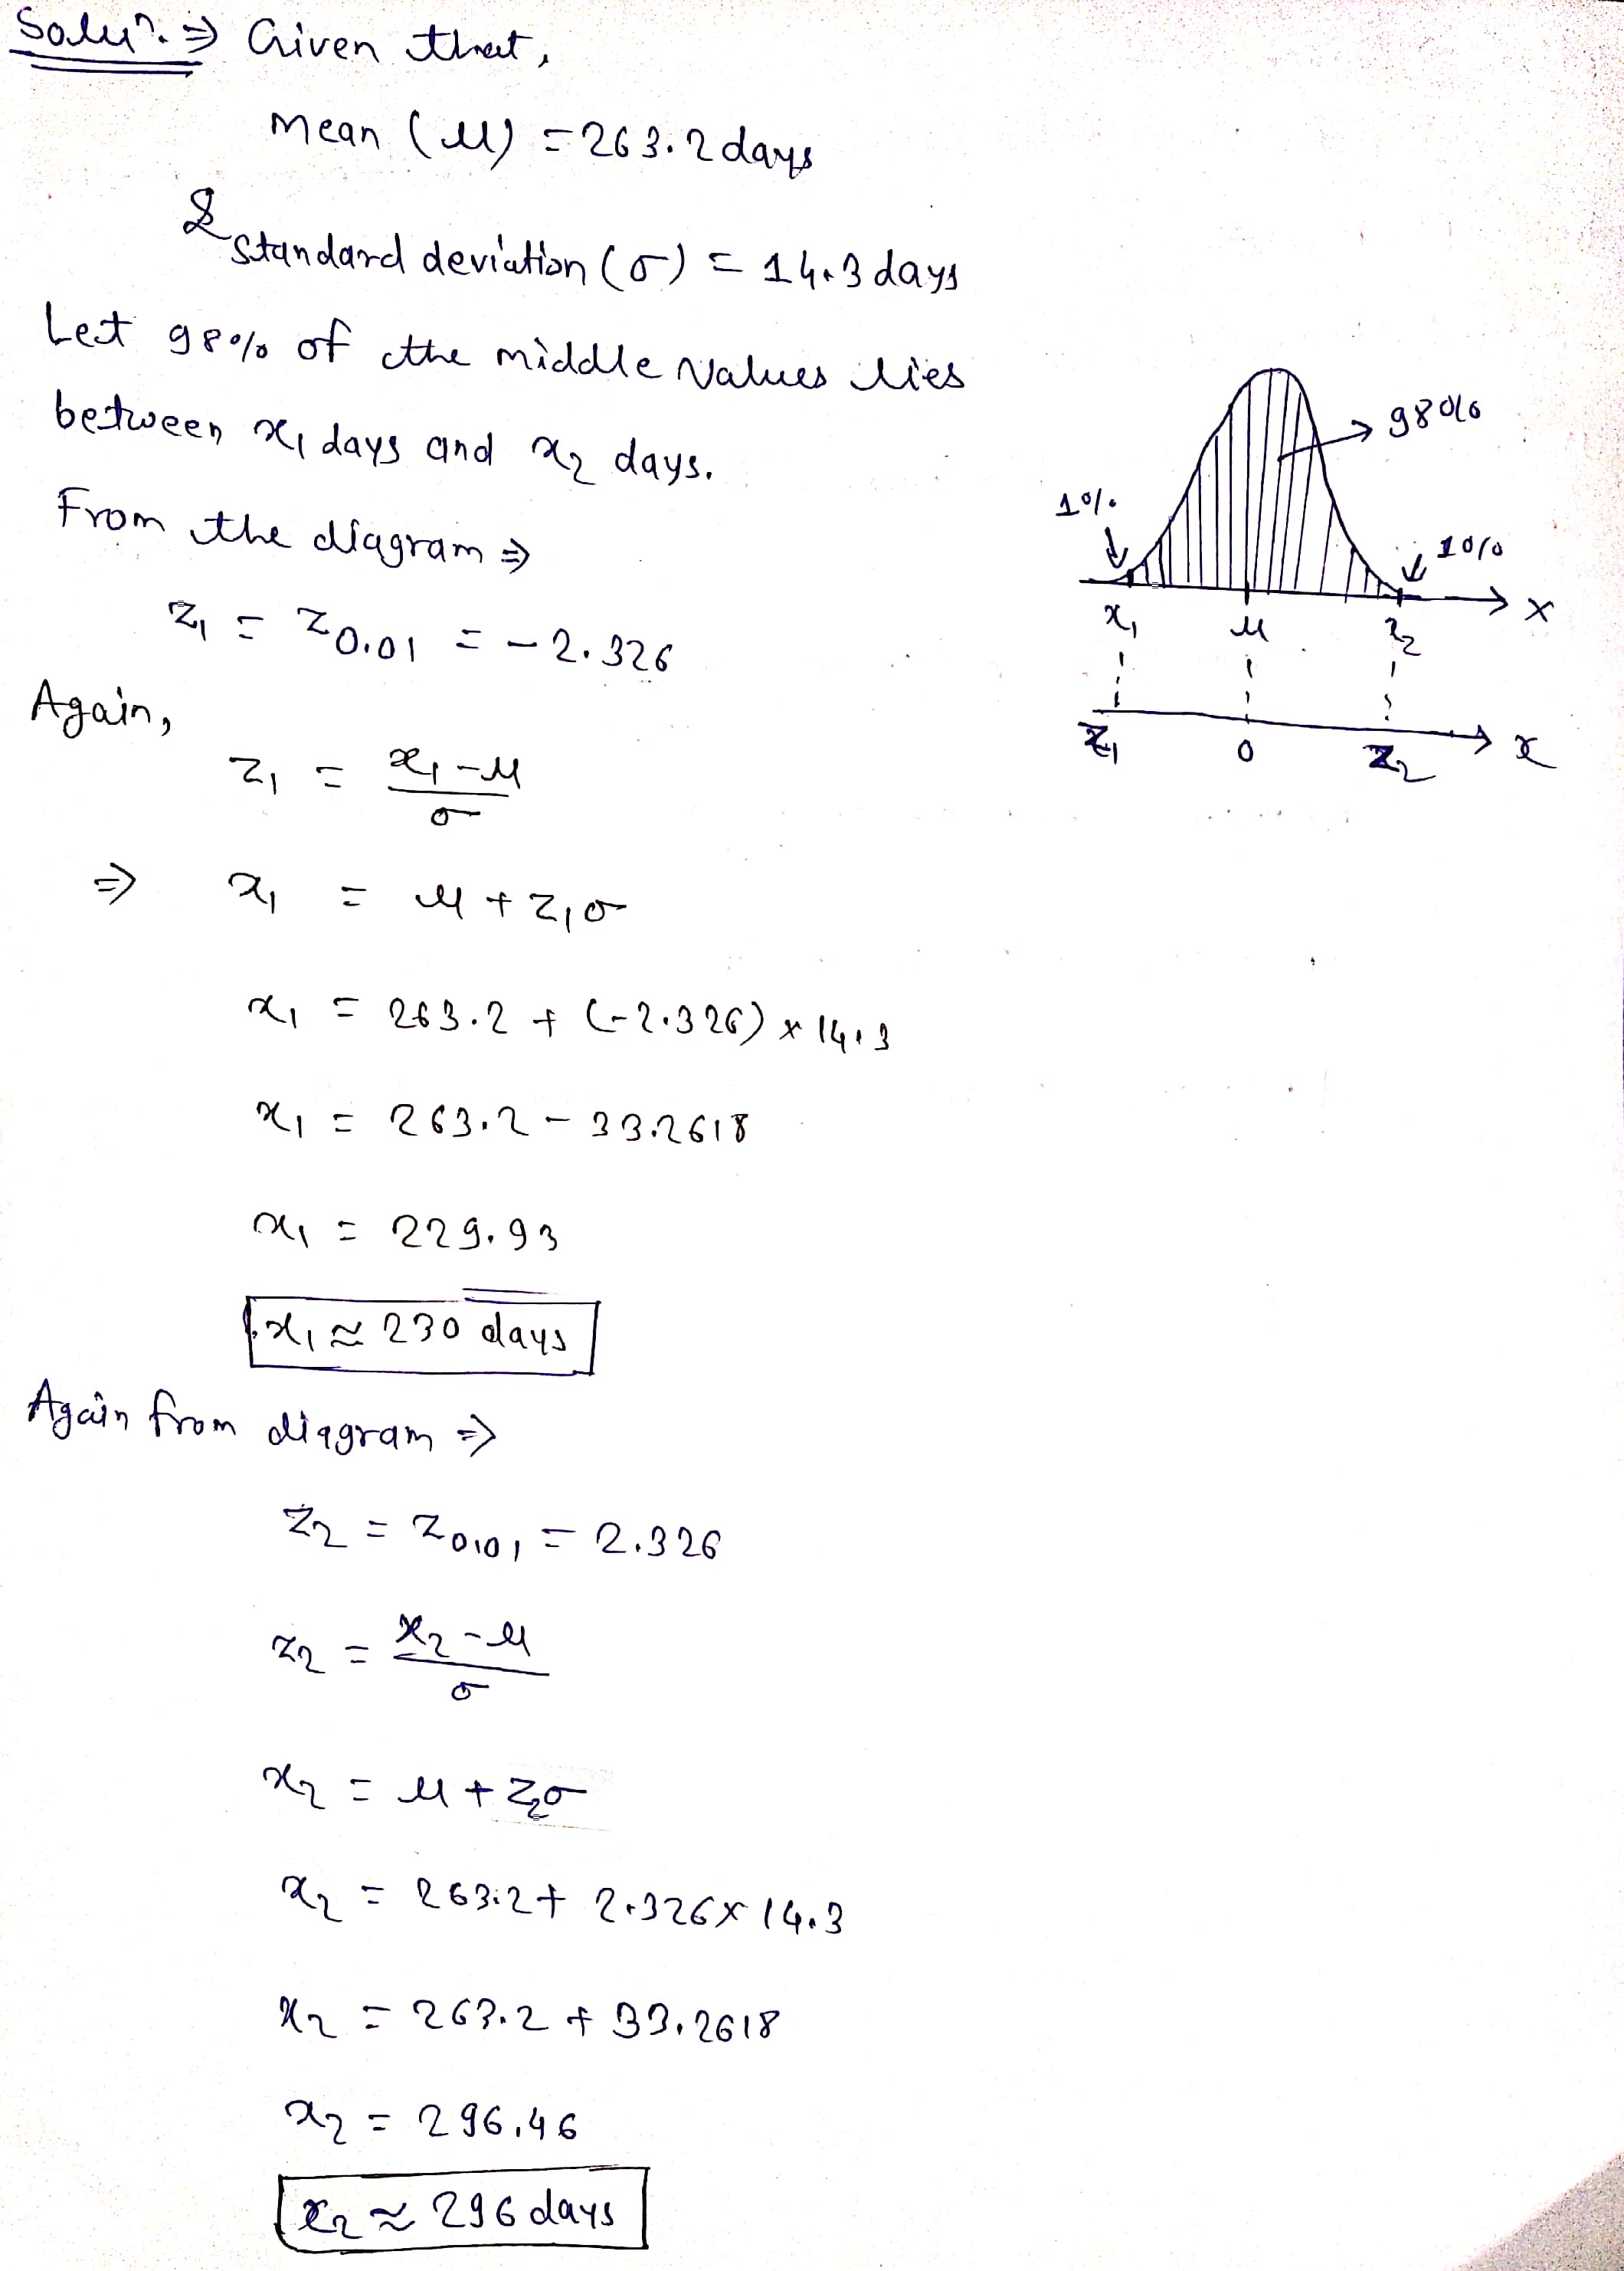 Solun. ⇒ Given that,
Mean (μ) = 263.2 days
&
Standard deviation (σ) = 14.3 days
Let 98% of the middle values lies
between x₁ days and x₂ days.
From the diagram ⇒
z₁ = z0.01 = -2.326
Again,
z₁ = x₁ - μ / σ
⇒ x₁ = μ + z₁σ
x₁ = 263.2 + (-2.326) × 14.3
x₁ = 263.2 - 33.2618
x₁ = 229.93
x₁ ≈ 230 days
Again from diagram ⇒
z₂ = z0.01 = 2.326
z₂ = x₂ - μ / σ
x₂ = μ + z₂σ
x₂ = 263.2 + 2.326 × 14.3
x₂ = 263.2 + 33.2618
x₂ = 296.46
x₂ ≈ 296 days
98%
1%
1%
x₁ μ x₂ X
z₁ 0 z₂ x